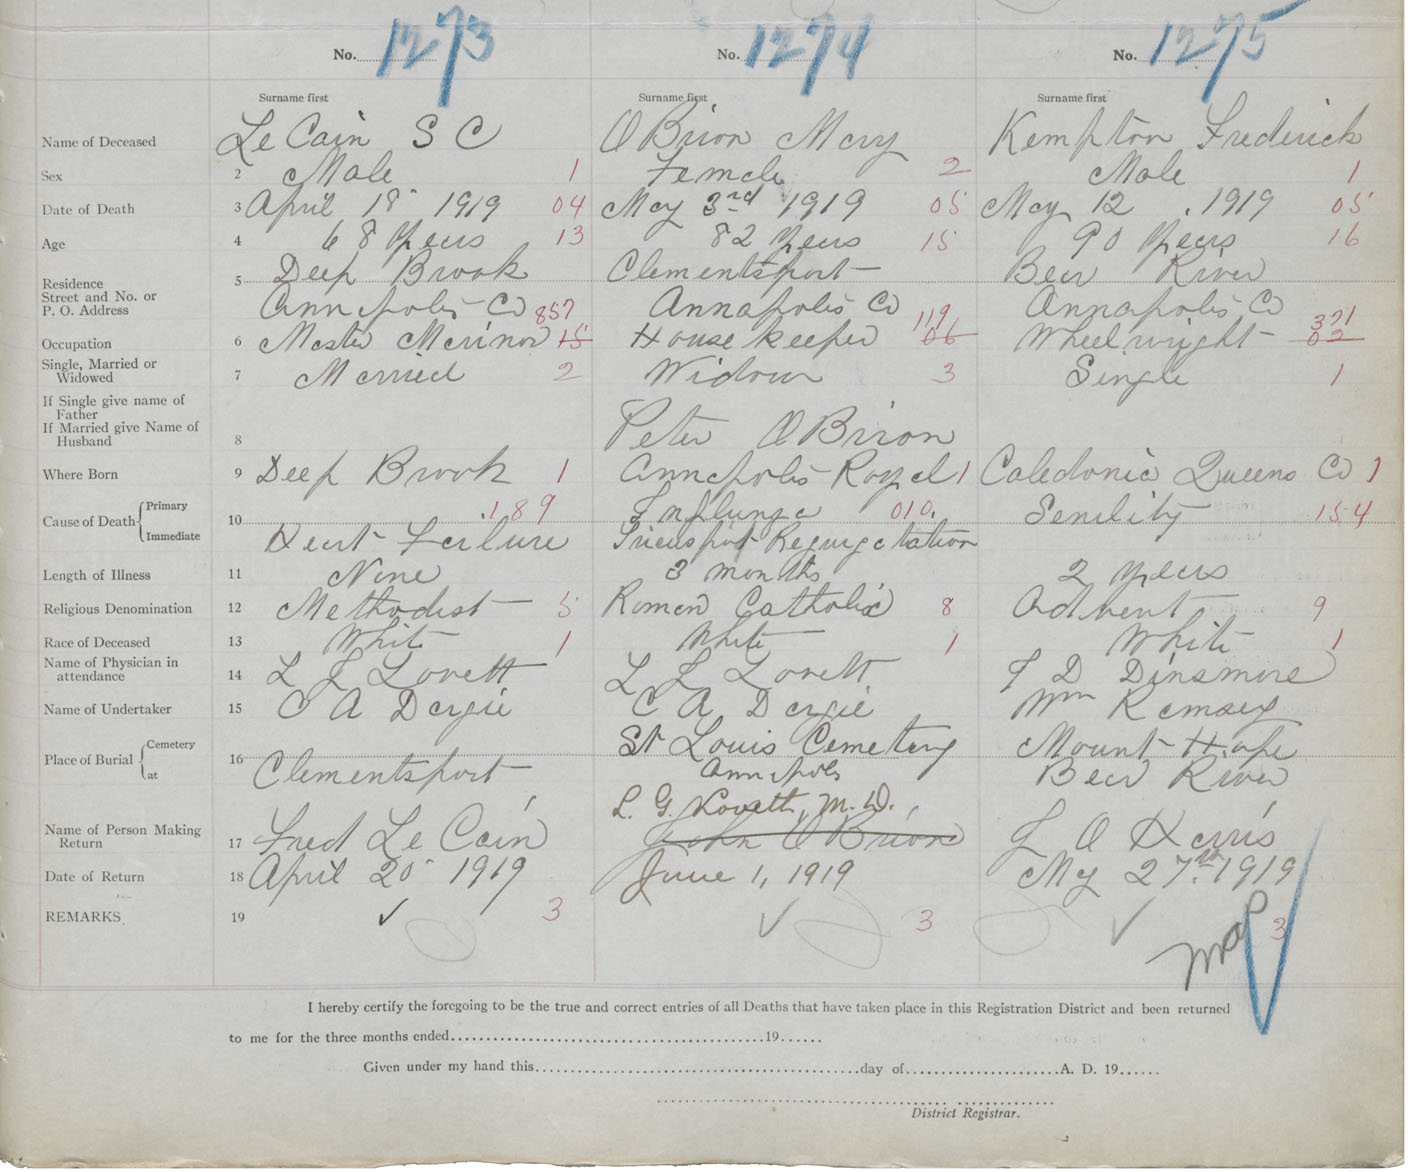 No. 1273 No. 1274 No. 1275
Surname first Surname first Surname first
Name of Deceased Le Cain S C O Brion Mary Kempton Frederick
Sex 2 Male 1 Female 2 Male 1
Date of Death 3 April 18 1919 04 May 3rd 1919 05 May 12 1919 05
Age 4 68 Years 13 82 Years 15 90 Years 16
Residence 5 Deep Brook Clementsport Bear River
Street and No. or
P. O. Address Annapolis Co 857 Annapolis Co 119 Annapolis Co 371
Occupation 6 Master Marinor 15 House keeper 06 Wheelwright 02
Single, Married or
Widowed 7 Married 2 Widow 3 Single 1
If Single give name of
Father
If Married give Name of
Husband 8 Peter O Brion
Where Born 9 Deep Brook 1 Annapolis Royal 1 Caledonia Queens Co 1
Cause of Death Primary 10 189 Influnza 010. Senility 154
Immediate Heart Failure Tricuspot Regurgatation
Length of Illness 11 None 3 months 2 Years
Religious Denomination 12 Methodist 5 Roman Catholic 8 Advent 9
Race of Deceased 13 White 1 White 1 White 1
Name of Physician in
attendance 14 L J Lovett L J Lovett J D Dinsmore
Name of Undertaker 15 C A Dargie C A Dargie Wm Ramsey
Place of Burial Cemetery 16 St Louis Cemetery Mount Hope
at Clementsport Annapols Bear River
L. G. Lovett, M. D.
Name of Person Making
Return 17 Fred Le Cain John O Brion L O Harris
Date of Return 18 April 20 1919 June 1, 1919 May 27th 1919
REMARKS 19 3 3 3
I hereby certify the foregoing to be the true and correct entries of all Deaths that have taken place in this Registration District and been returned
to me for the three months ended 19
Given under my hand this day of A. D. 19
District Registrar.